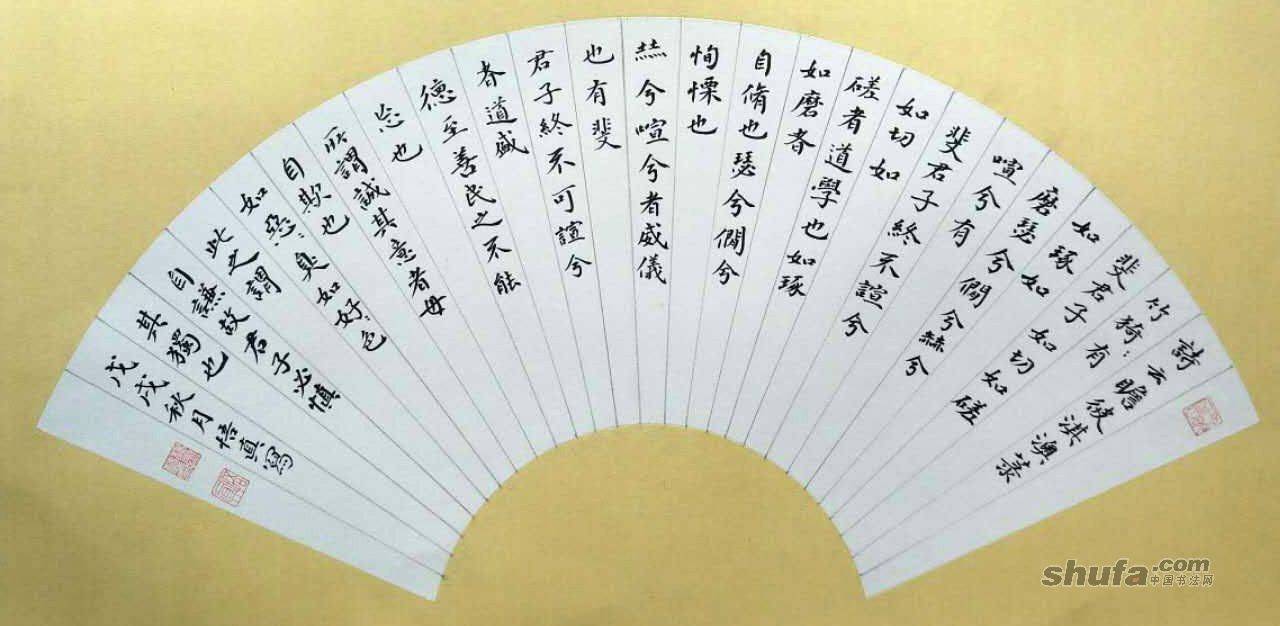 詩云瞻彼淇澳菉
竹猗〻有
斐君子如切如磋
如琢如
磨瑟兮僩兮赫兮
喧兮有
斐君子終不諠兮
如切如
磋者道學也如琢
如磨者
自脩也瑟兮僩兮
恂慄也
赫兮喧兮者威儀
也有斐
君子終不可諠兮
者道盛
德至善民之不能
忘也
所謂誠其意者毋
自欺也
如惡〻臭如好〻色
此之謂
自謙故君子必慎
其獨也
戊戌秋月悟真寫
shufa.com
中国书法网